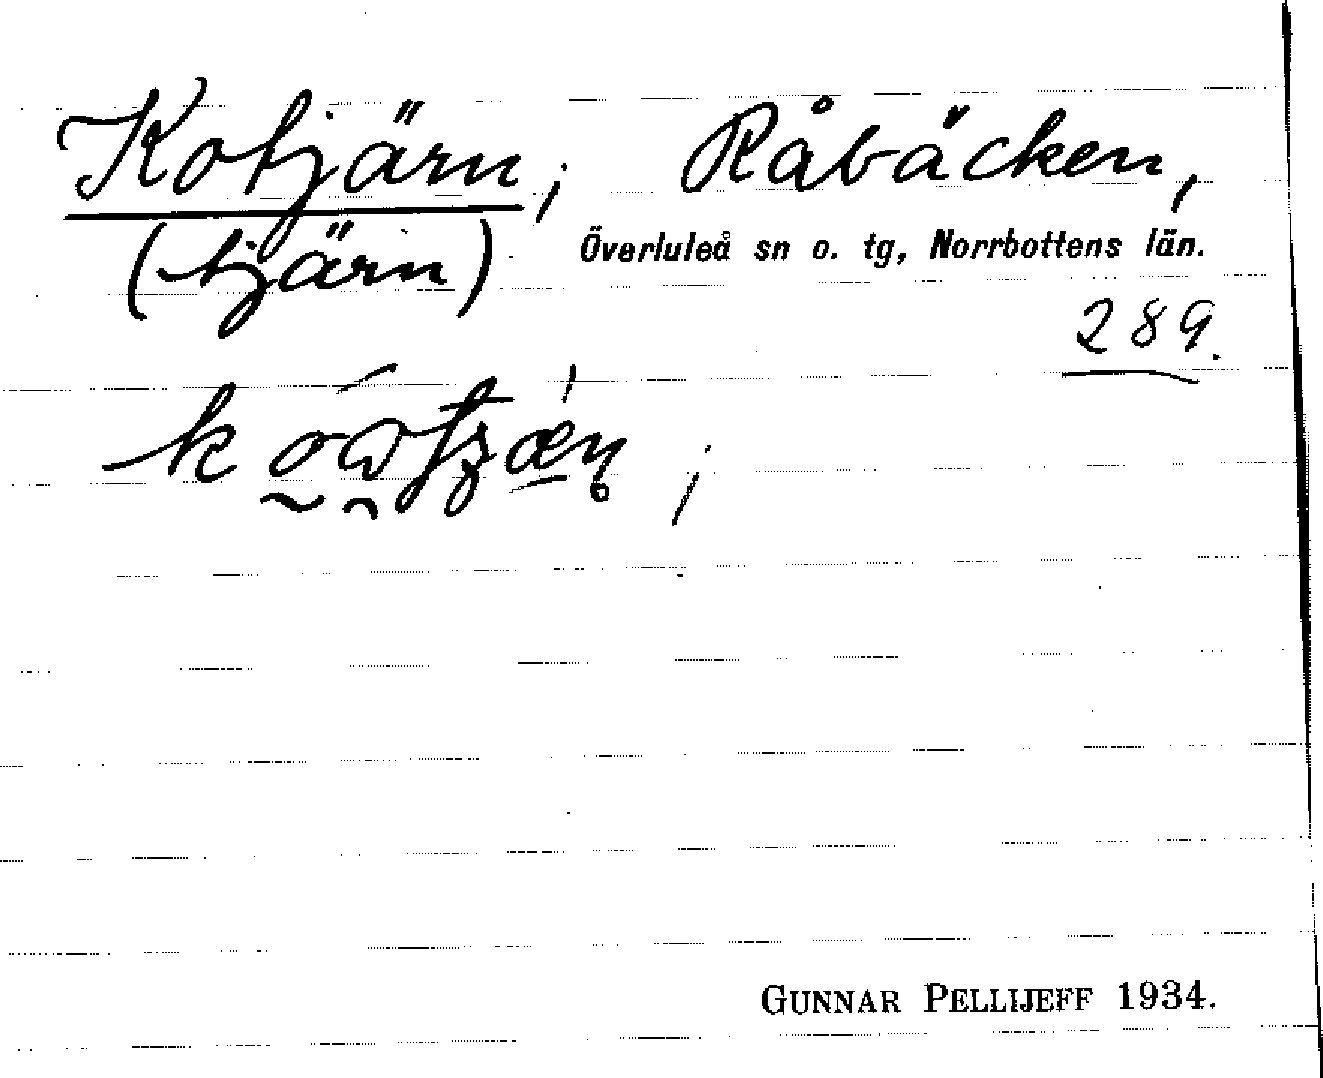 Kotjärn, Råbäcken,
(tjärn) Överluleå sn o. tg, Norrbottens län.
289.
GUNNAR PELLIJEFF 1934.